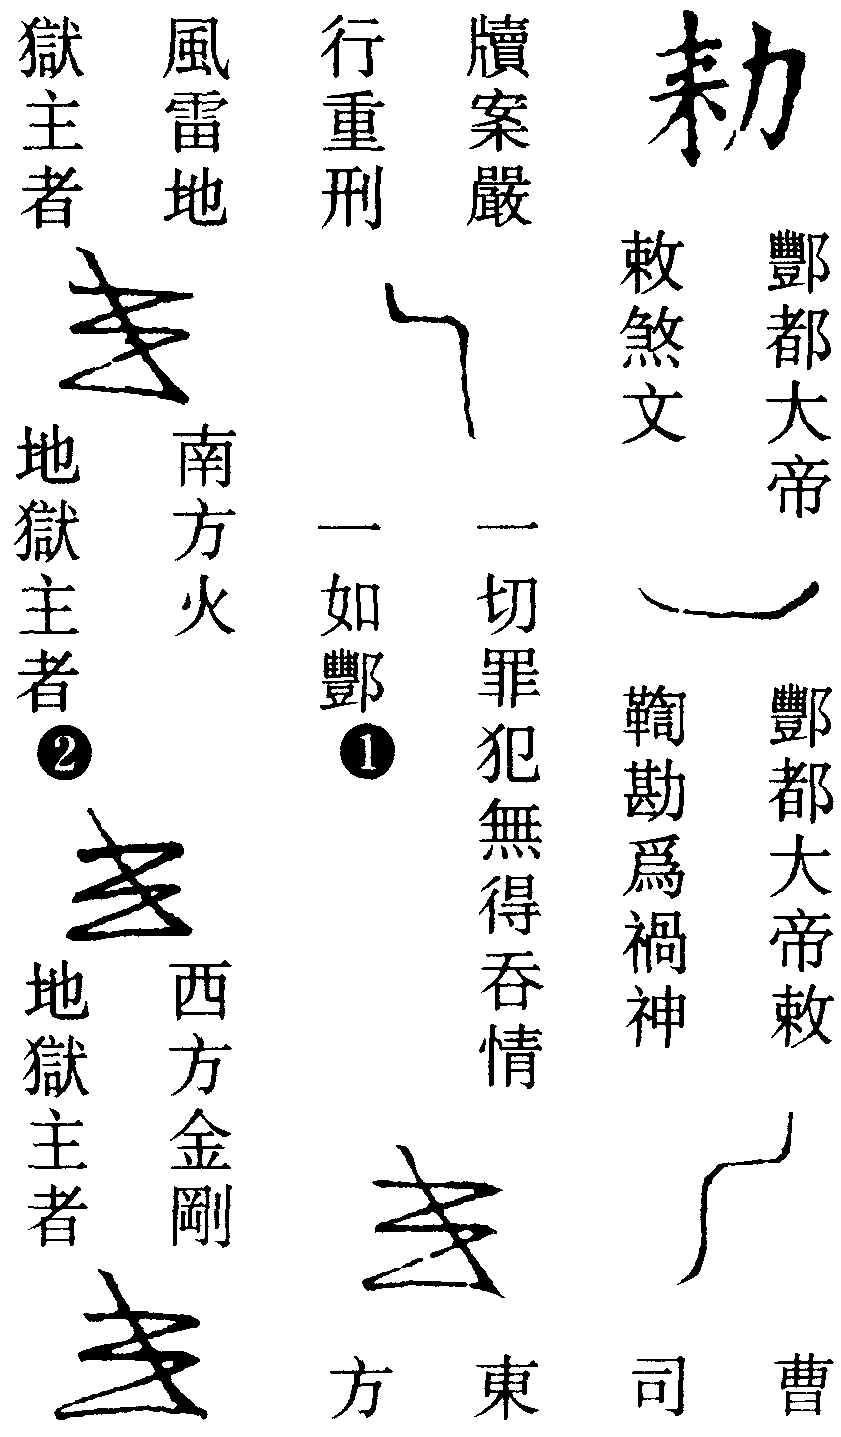 勑
酆都大帝
敕煞文
酆都大帝敕
鞫勘爲禍神
曹
司
牘案嚴
行重刑
一切罪犯無得吞情
一如酆❶
東
方
風雷地
獄主者
南方火
地獄主者❷
西方金剛
地獄主者